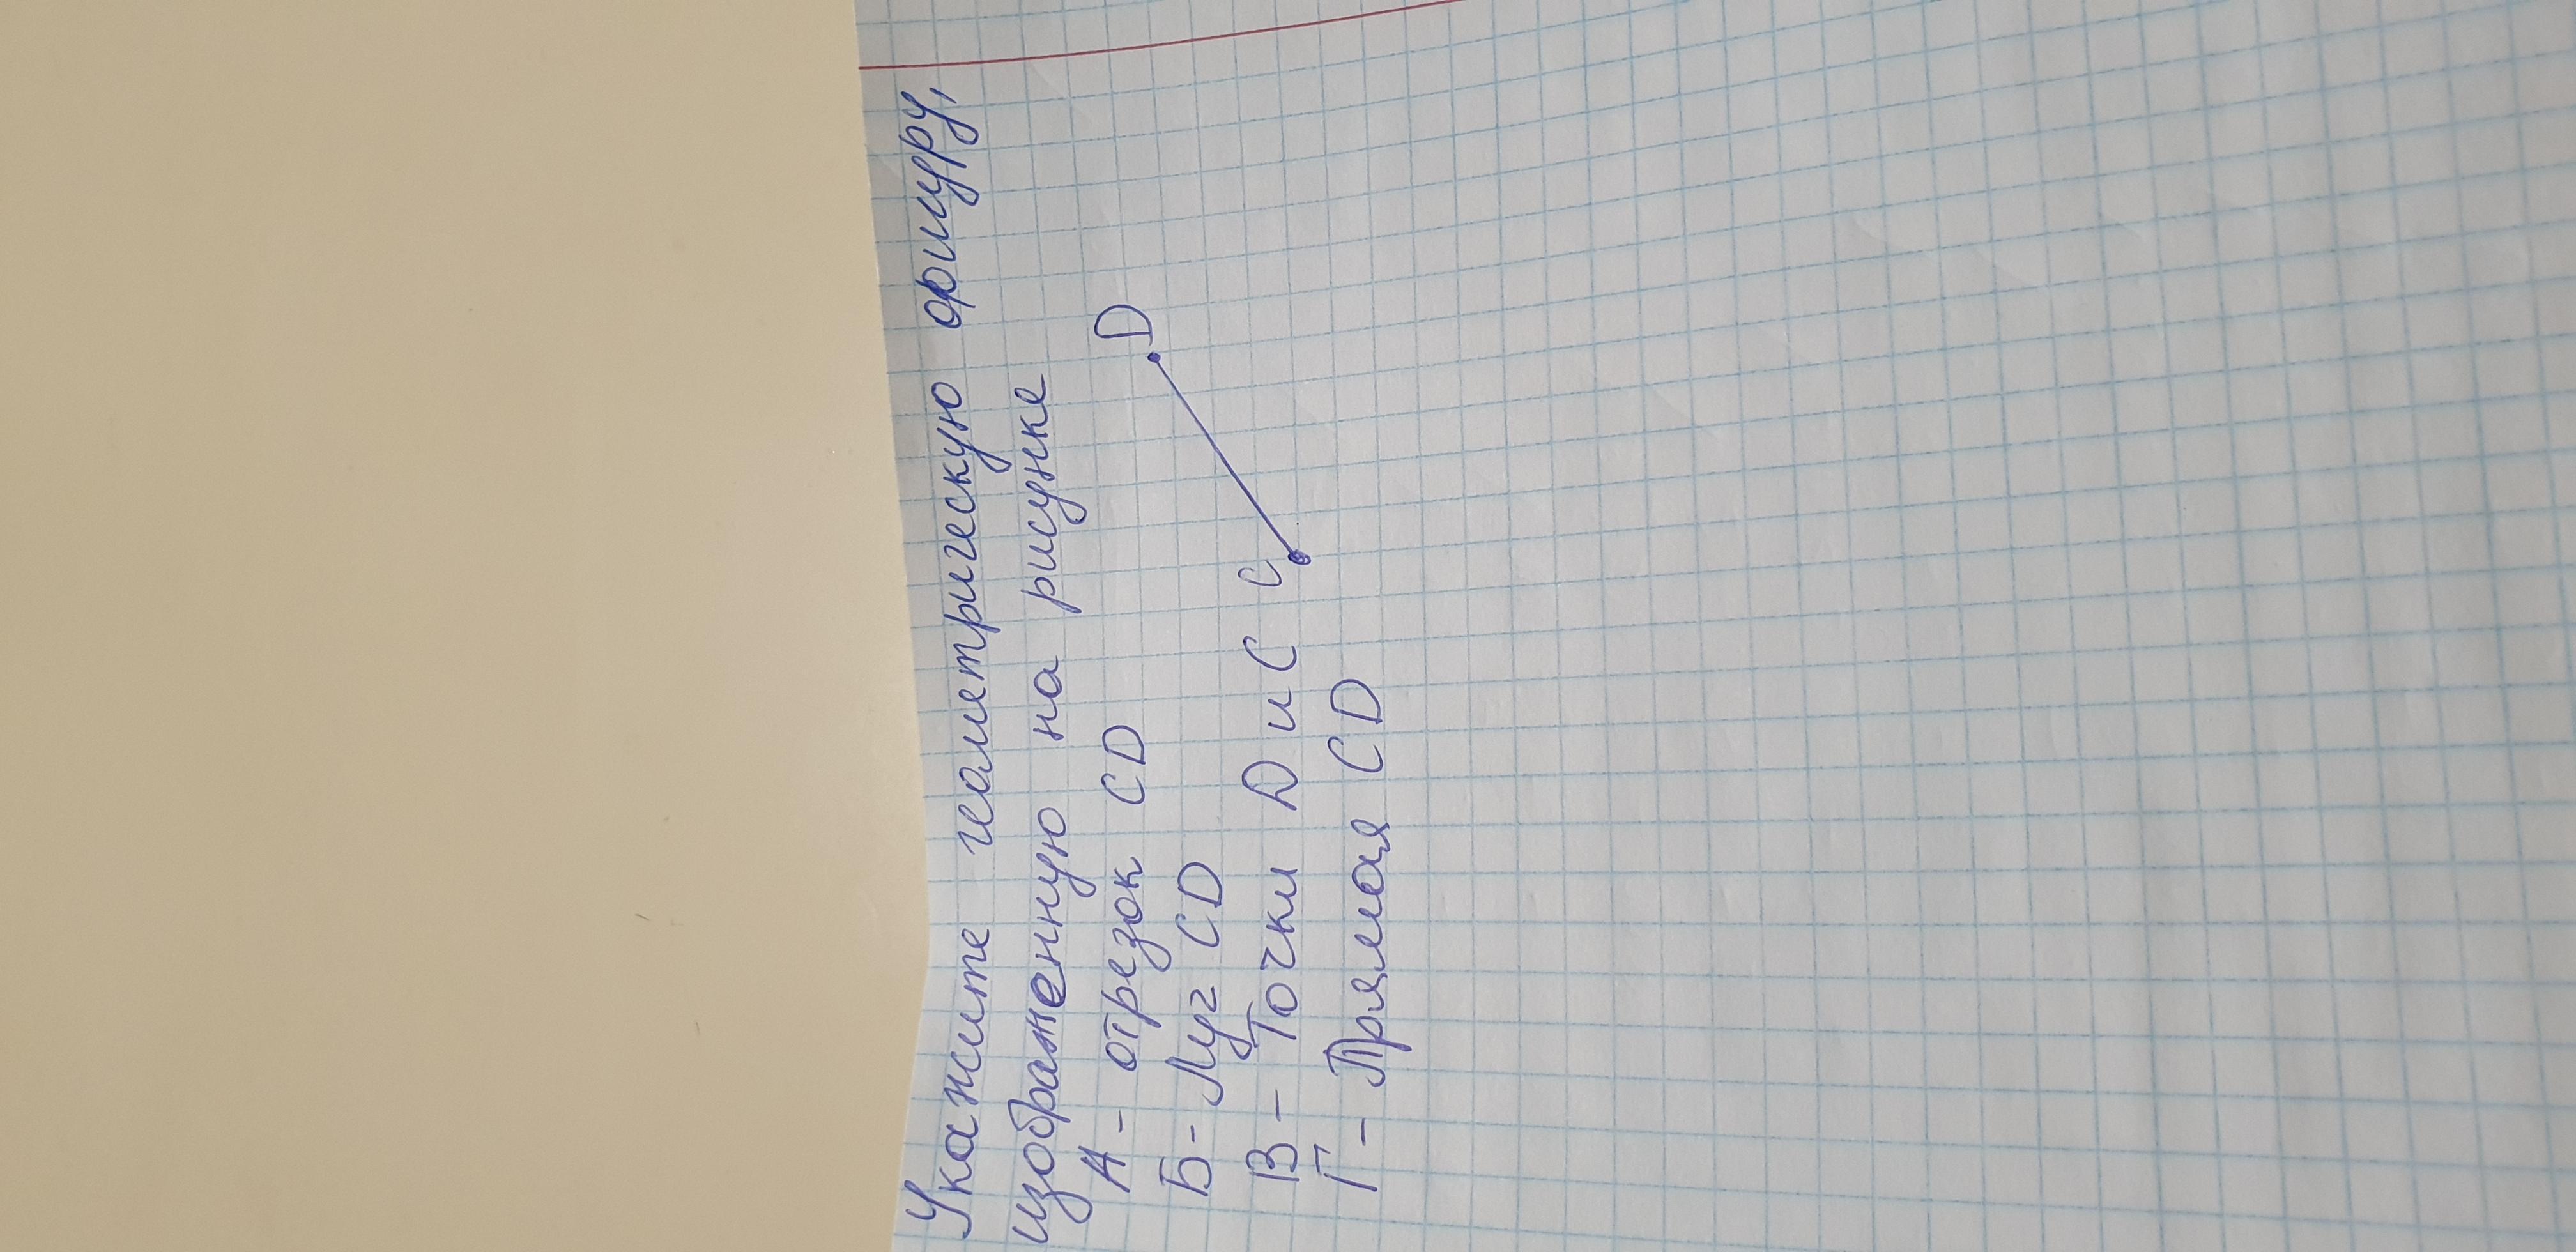 Укажите геометрическую фигуру,
изображенную на рисунке
А - отрезок CD
Б - Луг CD
В - Точки D и C
Г - Прямая CD
D
C